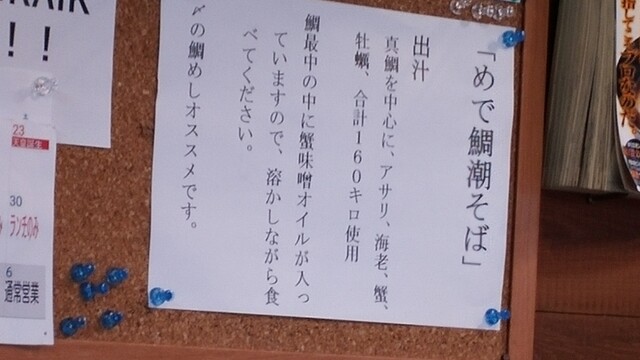 「めで鯛潮そば」
出汁
真鯛を中心に、アサリ、海老、蟹、
牡蠣、合計160キロ使用
鯛最中の中に蟹味噌オイルが入っ
ていますので、溶かしながら食
べてください。
〆の鯛めしオススメです。
!!
23
天皇誕生
30
ランチのみ
6
通常営業